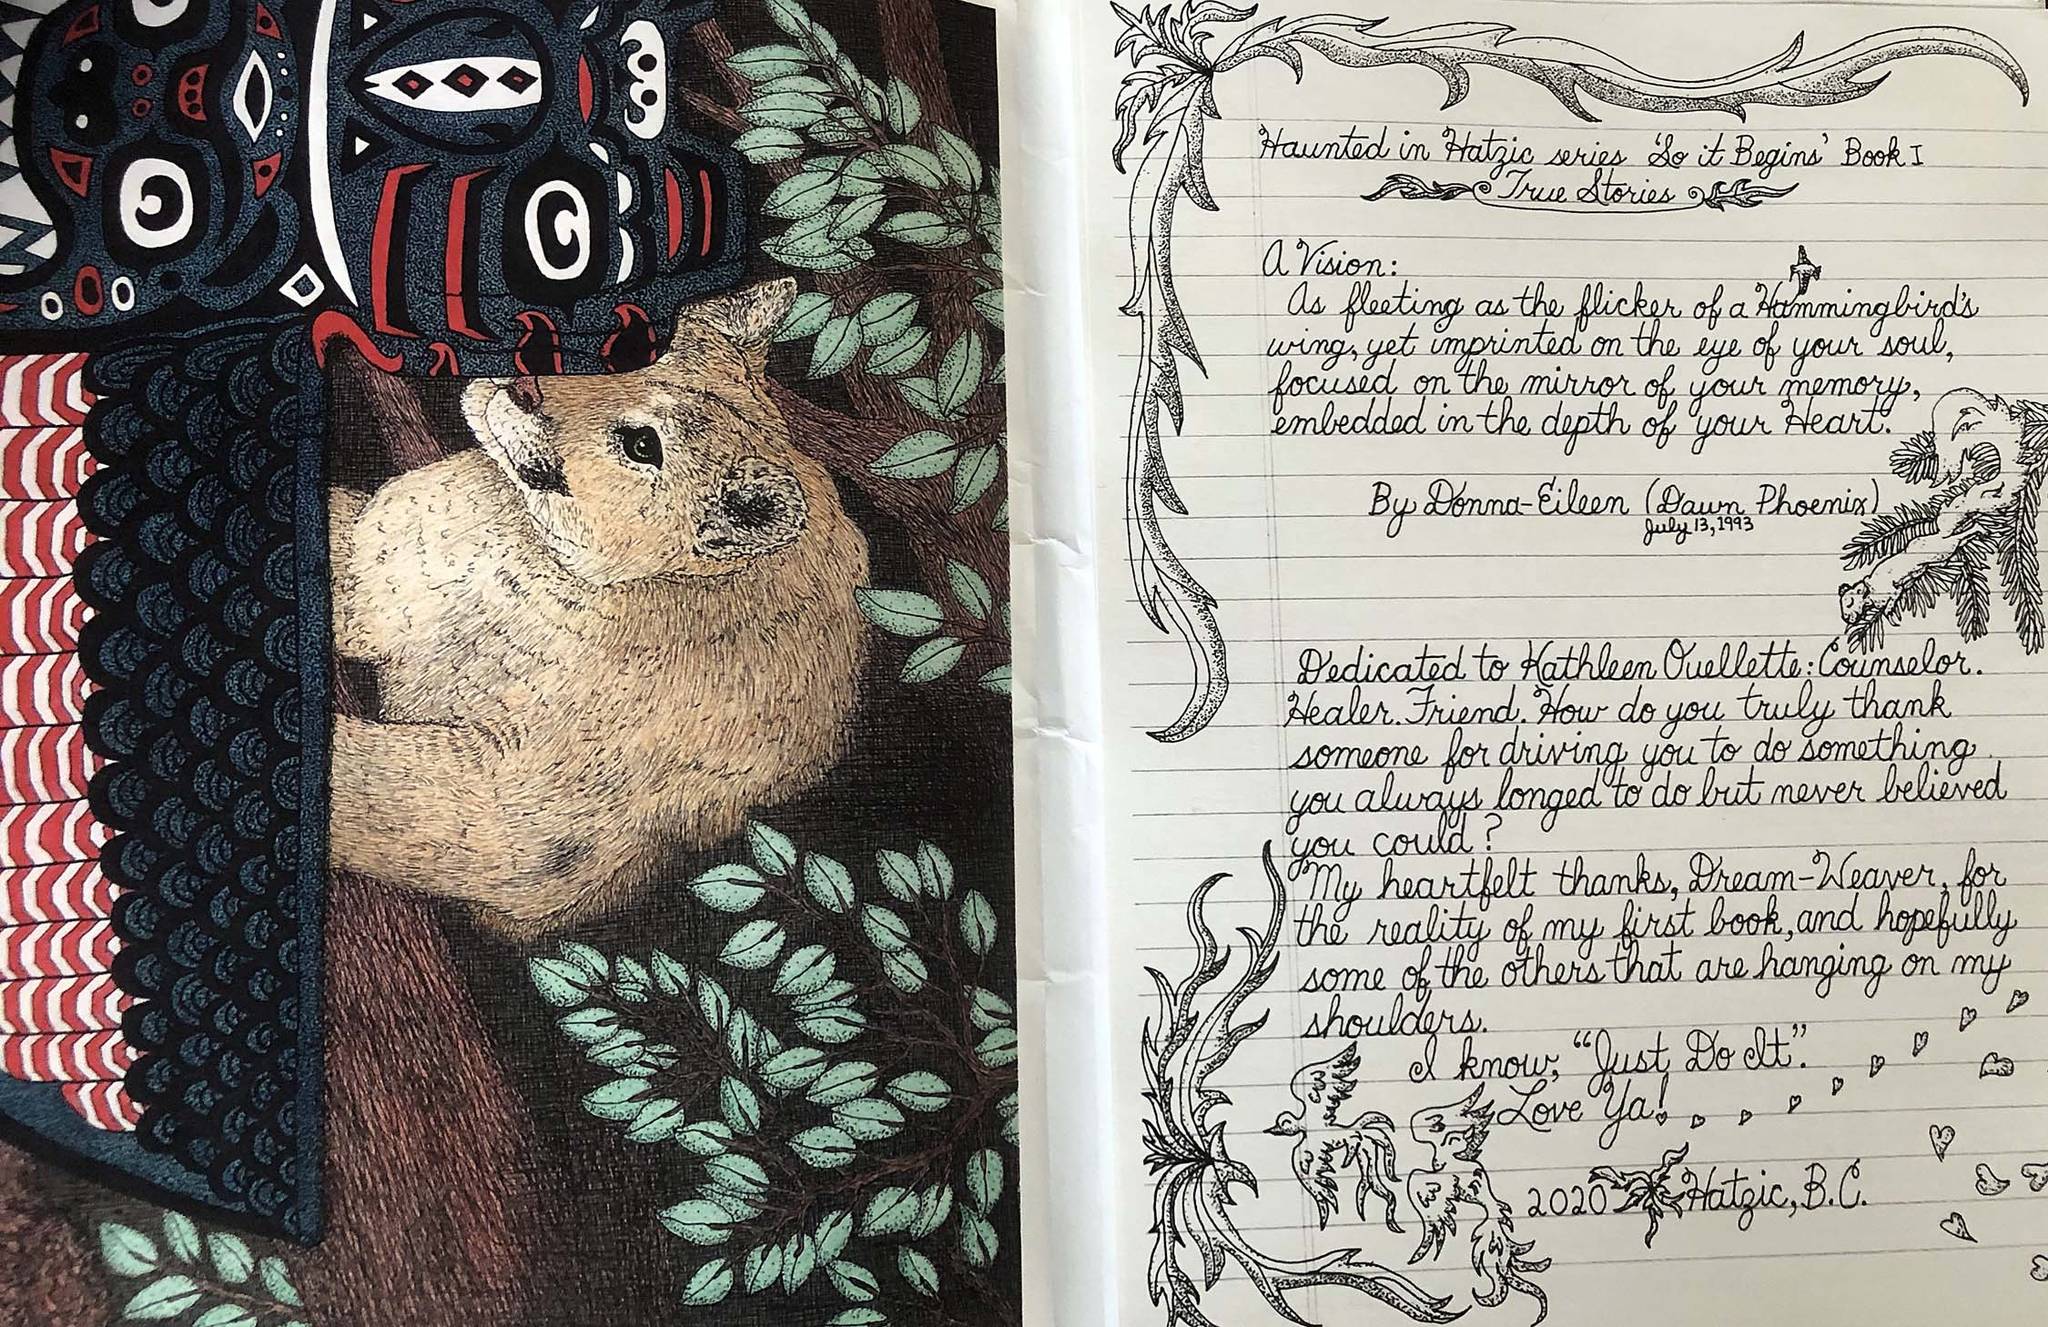 Haunted in Hatzic series 'So it Begins' Book I
True Stories
A Vision:
As fleeting as the flicker of a Hummingbird's
wing, yet imprinted on the eye of your soul,
focused on the mirror of your memory,
embedded in the depth of your Heart.
By Donna-Eileen (Dawn Phoenix)
July 13, 1993
Dedicated to Kathleen Ouellette: Counselor.
Healer. Friend. How do you truly thank
someone for driving you to do something
you always longed to do but never believed
you could?
My heartfelt thanks, Dream-Weaver, for
the reality of my first book, and hopefully
some of the others that are hanging on my
shoulders.
I know, "Just Do It".
Love Ya!
2020 Hatzic, B.C.